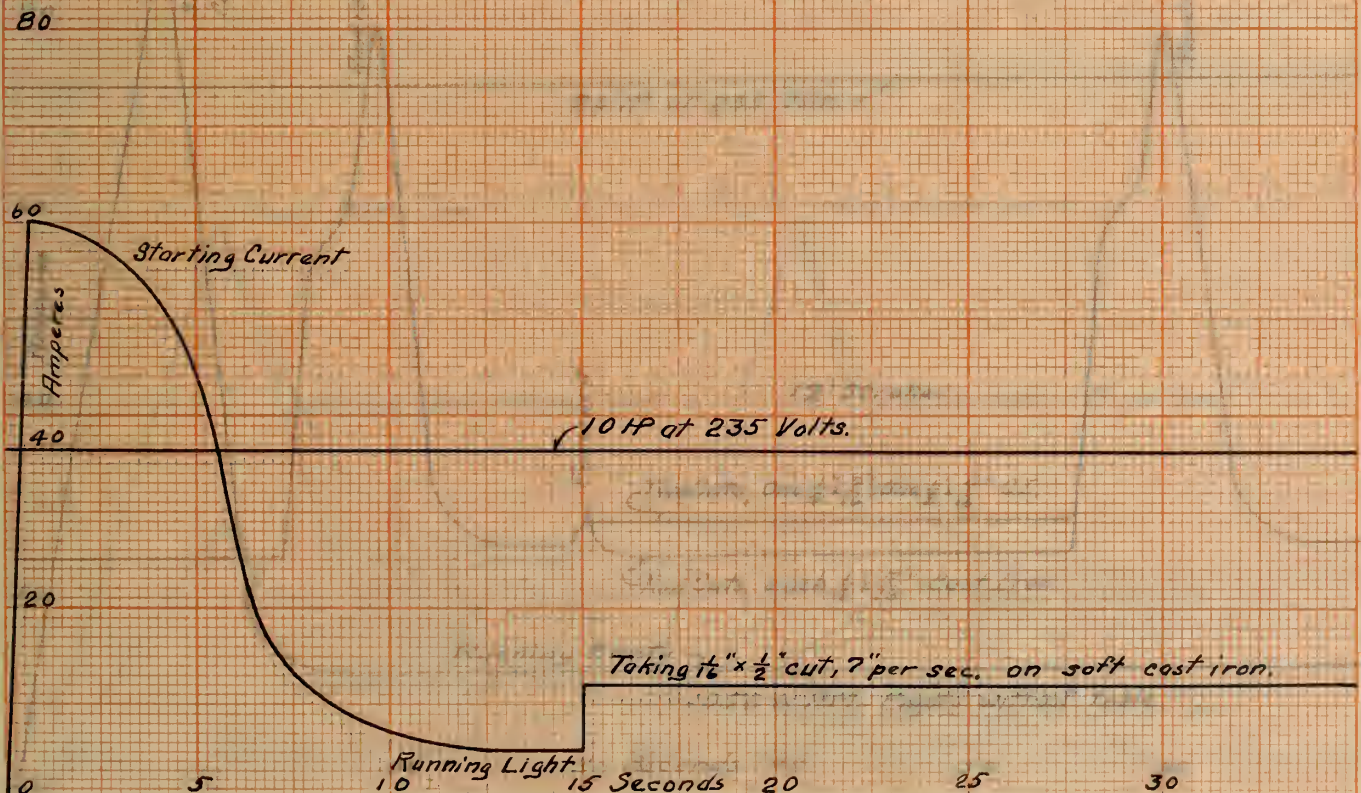 80
60
Starting Current
Amperes
10 HP at 235 Volts.
40
20
Taking 1/16" x 1/2" cut, 7" per sec. on soft cast iron.
Running Light
0 5 10 15 Seconds 20 25 30